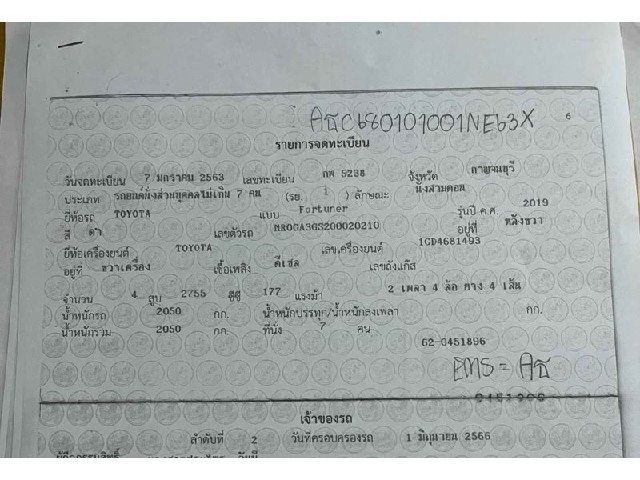 AธC680101001NE63X
6
รายการจดทะเบียน
วันจดทะเบียน 7 มกราคม 2563 เลขทะเบียน กพ 5238 จังหวัด กาญจนบุรี
ประเภท รถยนต์นั่งส่วนบุคคลไม่เกิน 7 คน (รย. 1 ) ลักษณะ นั่งสามตอน
ยี่ห้อรถ TOYOTA แบบ Fortuner รุ่นปี ค.ศ 2019
สี ดำ เลขตัวรถ อยู่ที่ หลังขวา
ยี่ห้อเครื่องยนต์ TOYOTA เลขเครื่องยนต์ 1GD4681493
อยู่ที่ ขวาเครื่อง เชื้อเพลิง ดีเซล เลขถังแก๊ส
จำนวน 4 สูบ 2755 ซีซี 177 แรงม้า 2 เพลา 4 ล้อ ยาง 4 เส้น
น้ำหนักรถ 2050 กก. น้ำหนักบรรทุก/น้ำหนักลงเพลา กก.
น้ำหนักรวม 2050 กก. ที่นั่ง 7 คน
62-0451896
EMS = Aธ
เจ้าของรถ
ลำดับที่ 2 วันที่ครอบครองรถ 1 มิถุนายน 2566